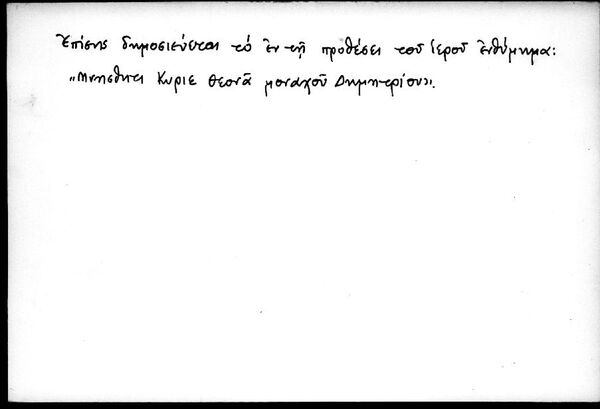 Ἐπίσης δημοσιεύεται τό ἐν τῇ προθέσει τοῦ ἱεροῦ ἐνθύμημα:
"Μνησθητι Κυριε Θεονᾶ μοναχοῦ Δημητρίου".